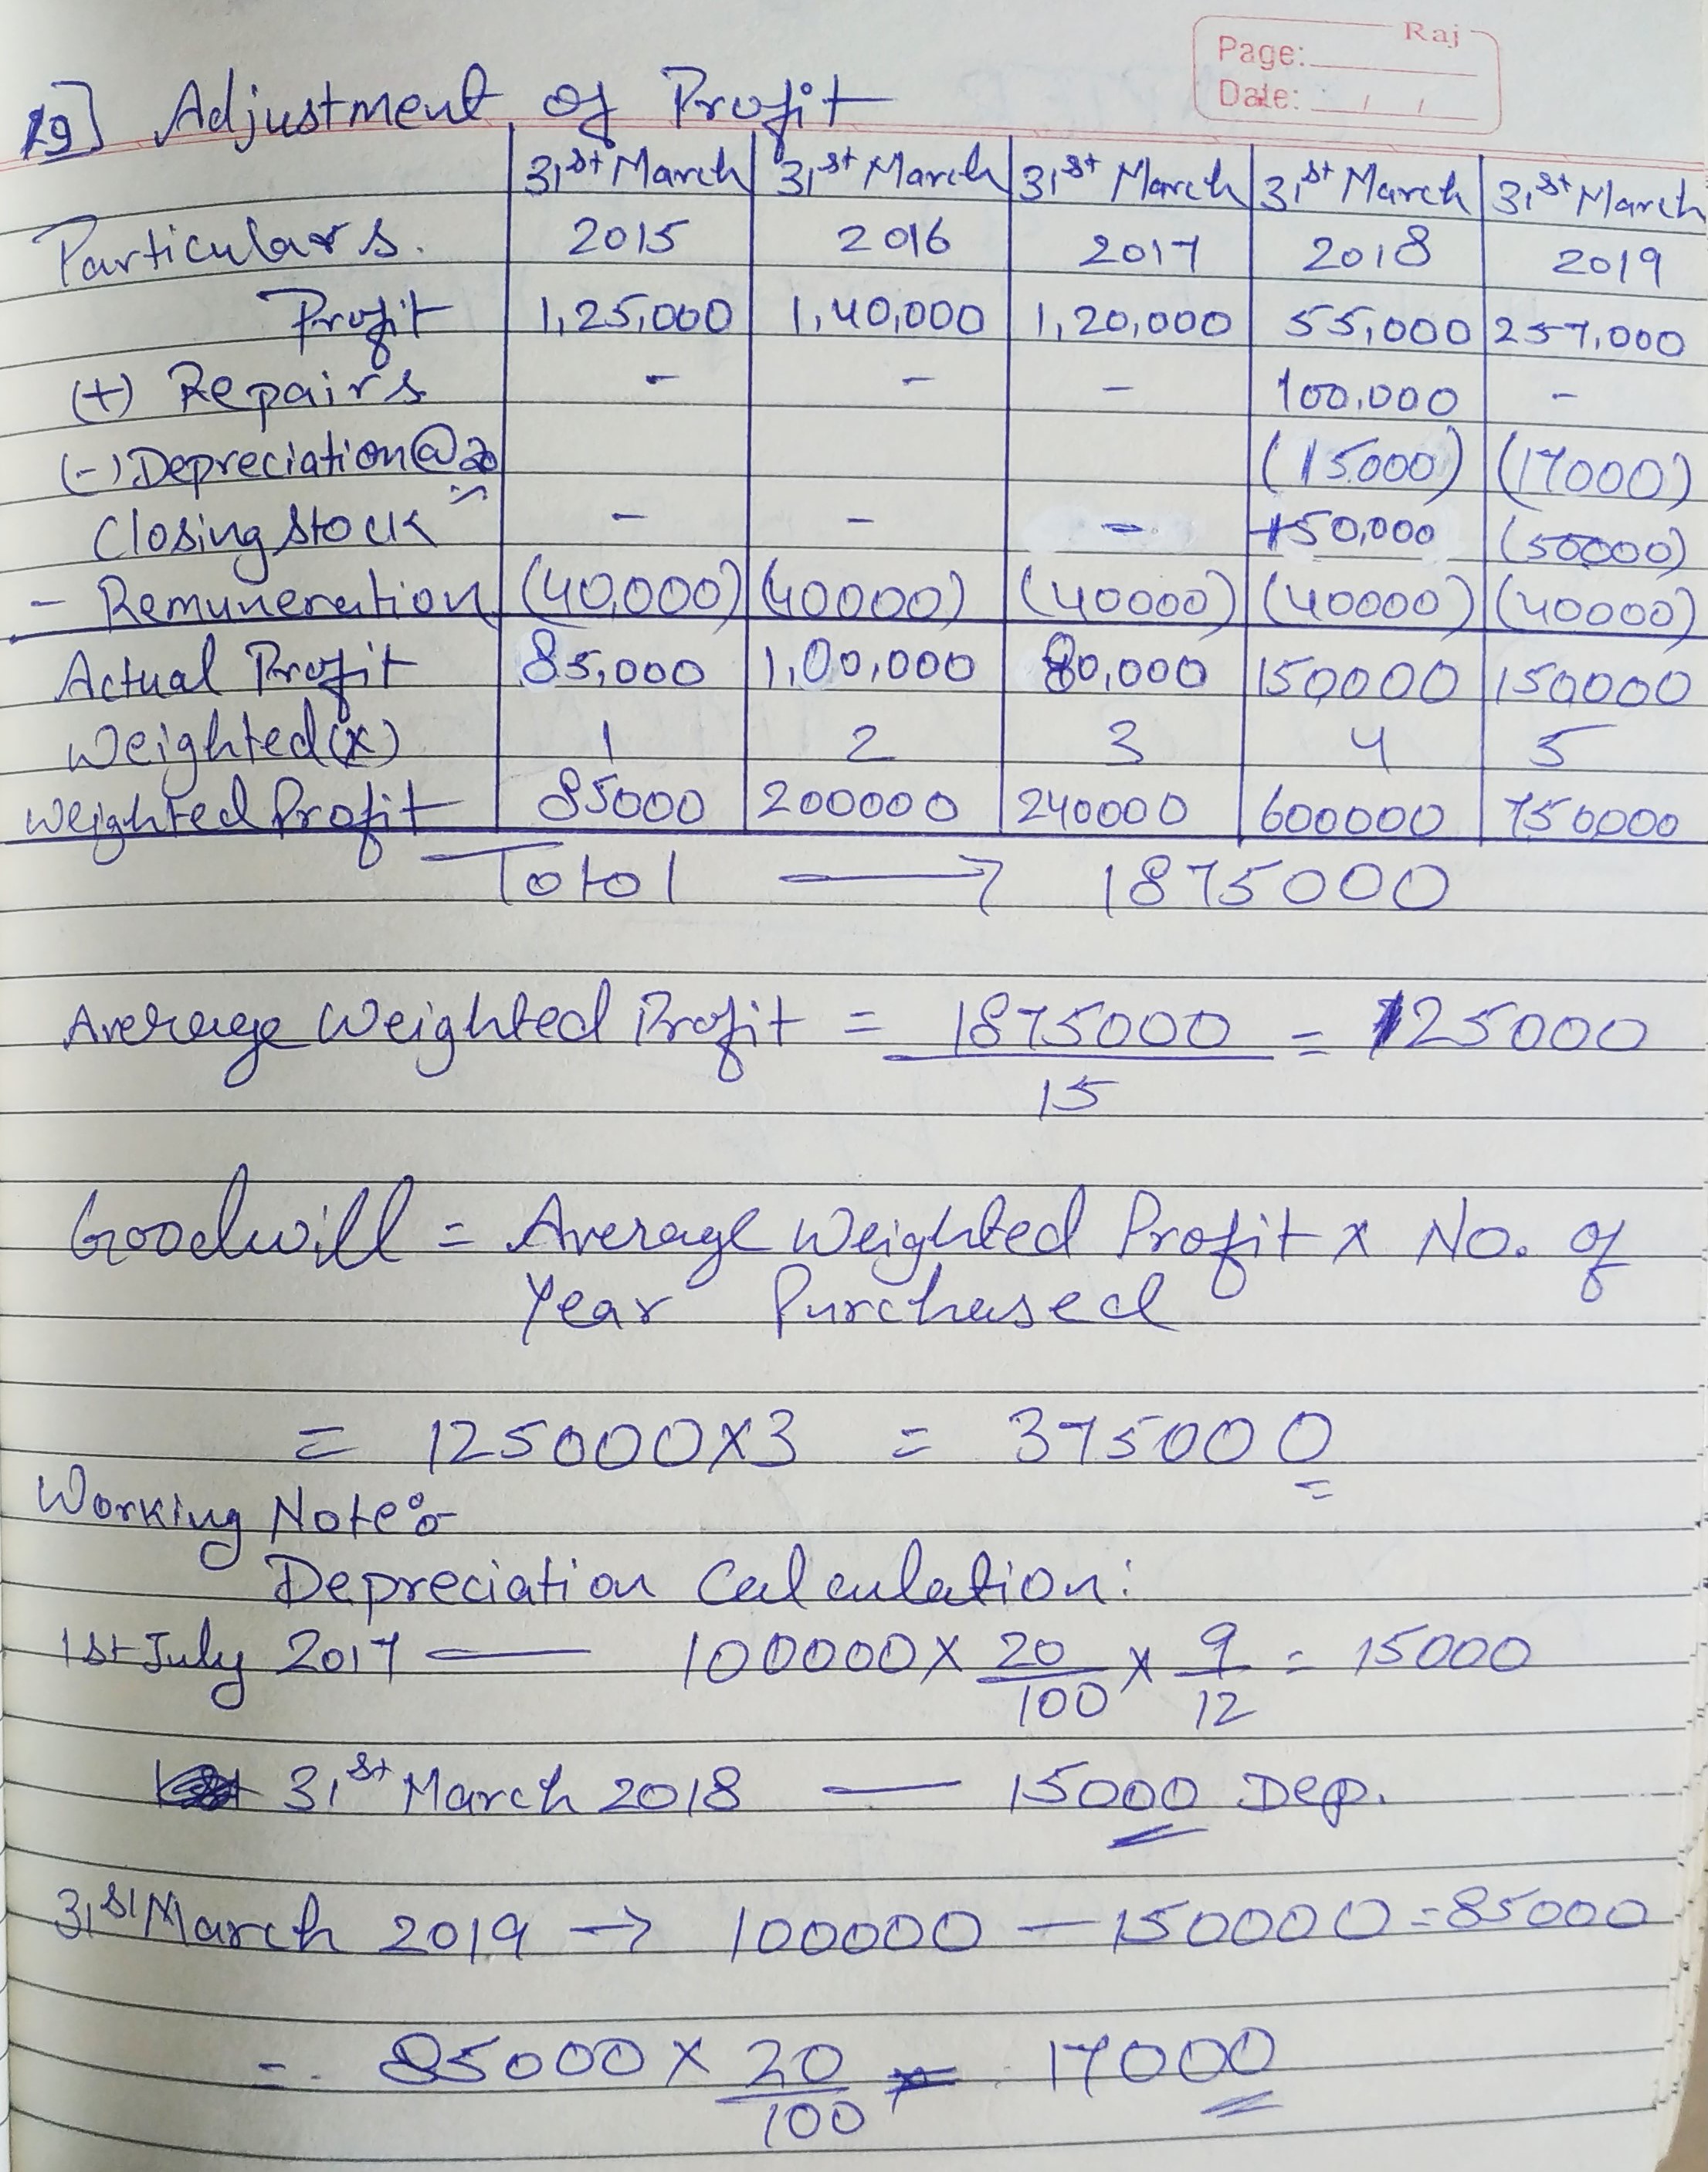 Raj
Page:
Date: / /
19] Adjustment of Profit
Particulars. 31st March 2015 31st March 2016 31st March 2017 31st March 2018 31st March 2019
Profit 1,25,000 1,40,000 1,20,000 55,000 257,000
(+) Repairs - - - 100,000 -
(-) Depreciation@20 (15000) (17000)
Closing stock - - - +50,000 (50000)
- Remuneration (40,000) (40000) (40000) (40000) (40000)
Actual Profit 85,000 1,00,000 80,000 150000 150000
Weighted(x) 1 2 3 4 5
Weighted Profit 85000 200000 240000 600000 750000
Total → 1875000
Average Weighted Profit = 1875000 = 125000
15
Goodwill = Average Weighted Profit x No. of
Year Purchased
= 125000x3 = 375000
Working Note:-
Depreciation Calculation:
1st July 2017 — 100000 x 20/100 x 9/12 = 15000
31st March 2018 — 15000 Dep.
31st March 2019 → 100000 — 150000 = 85000
= 85000 x 20/100 = 17000